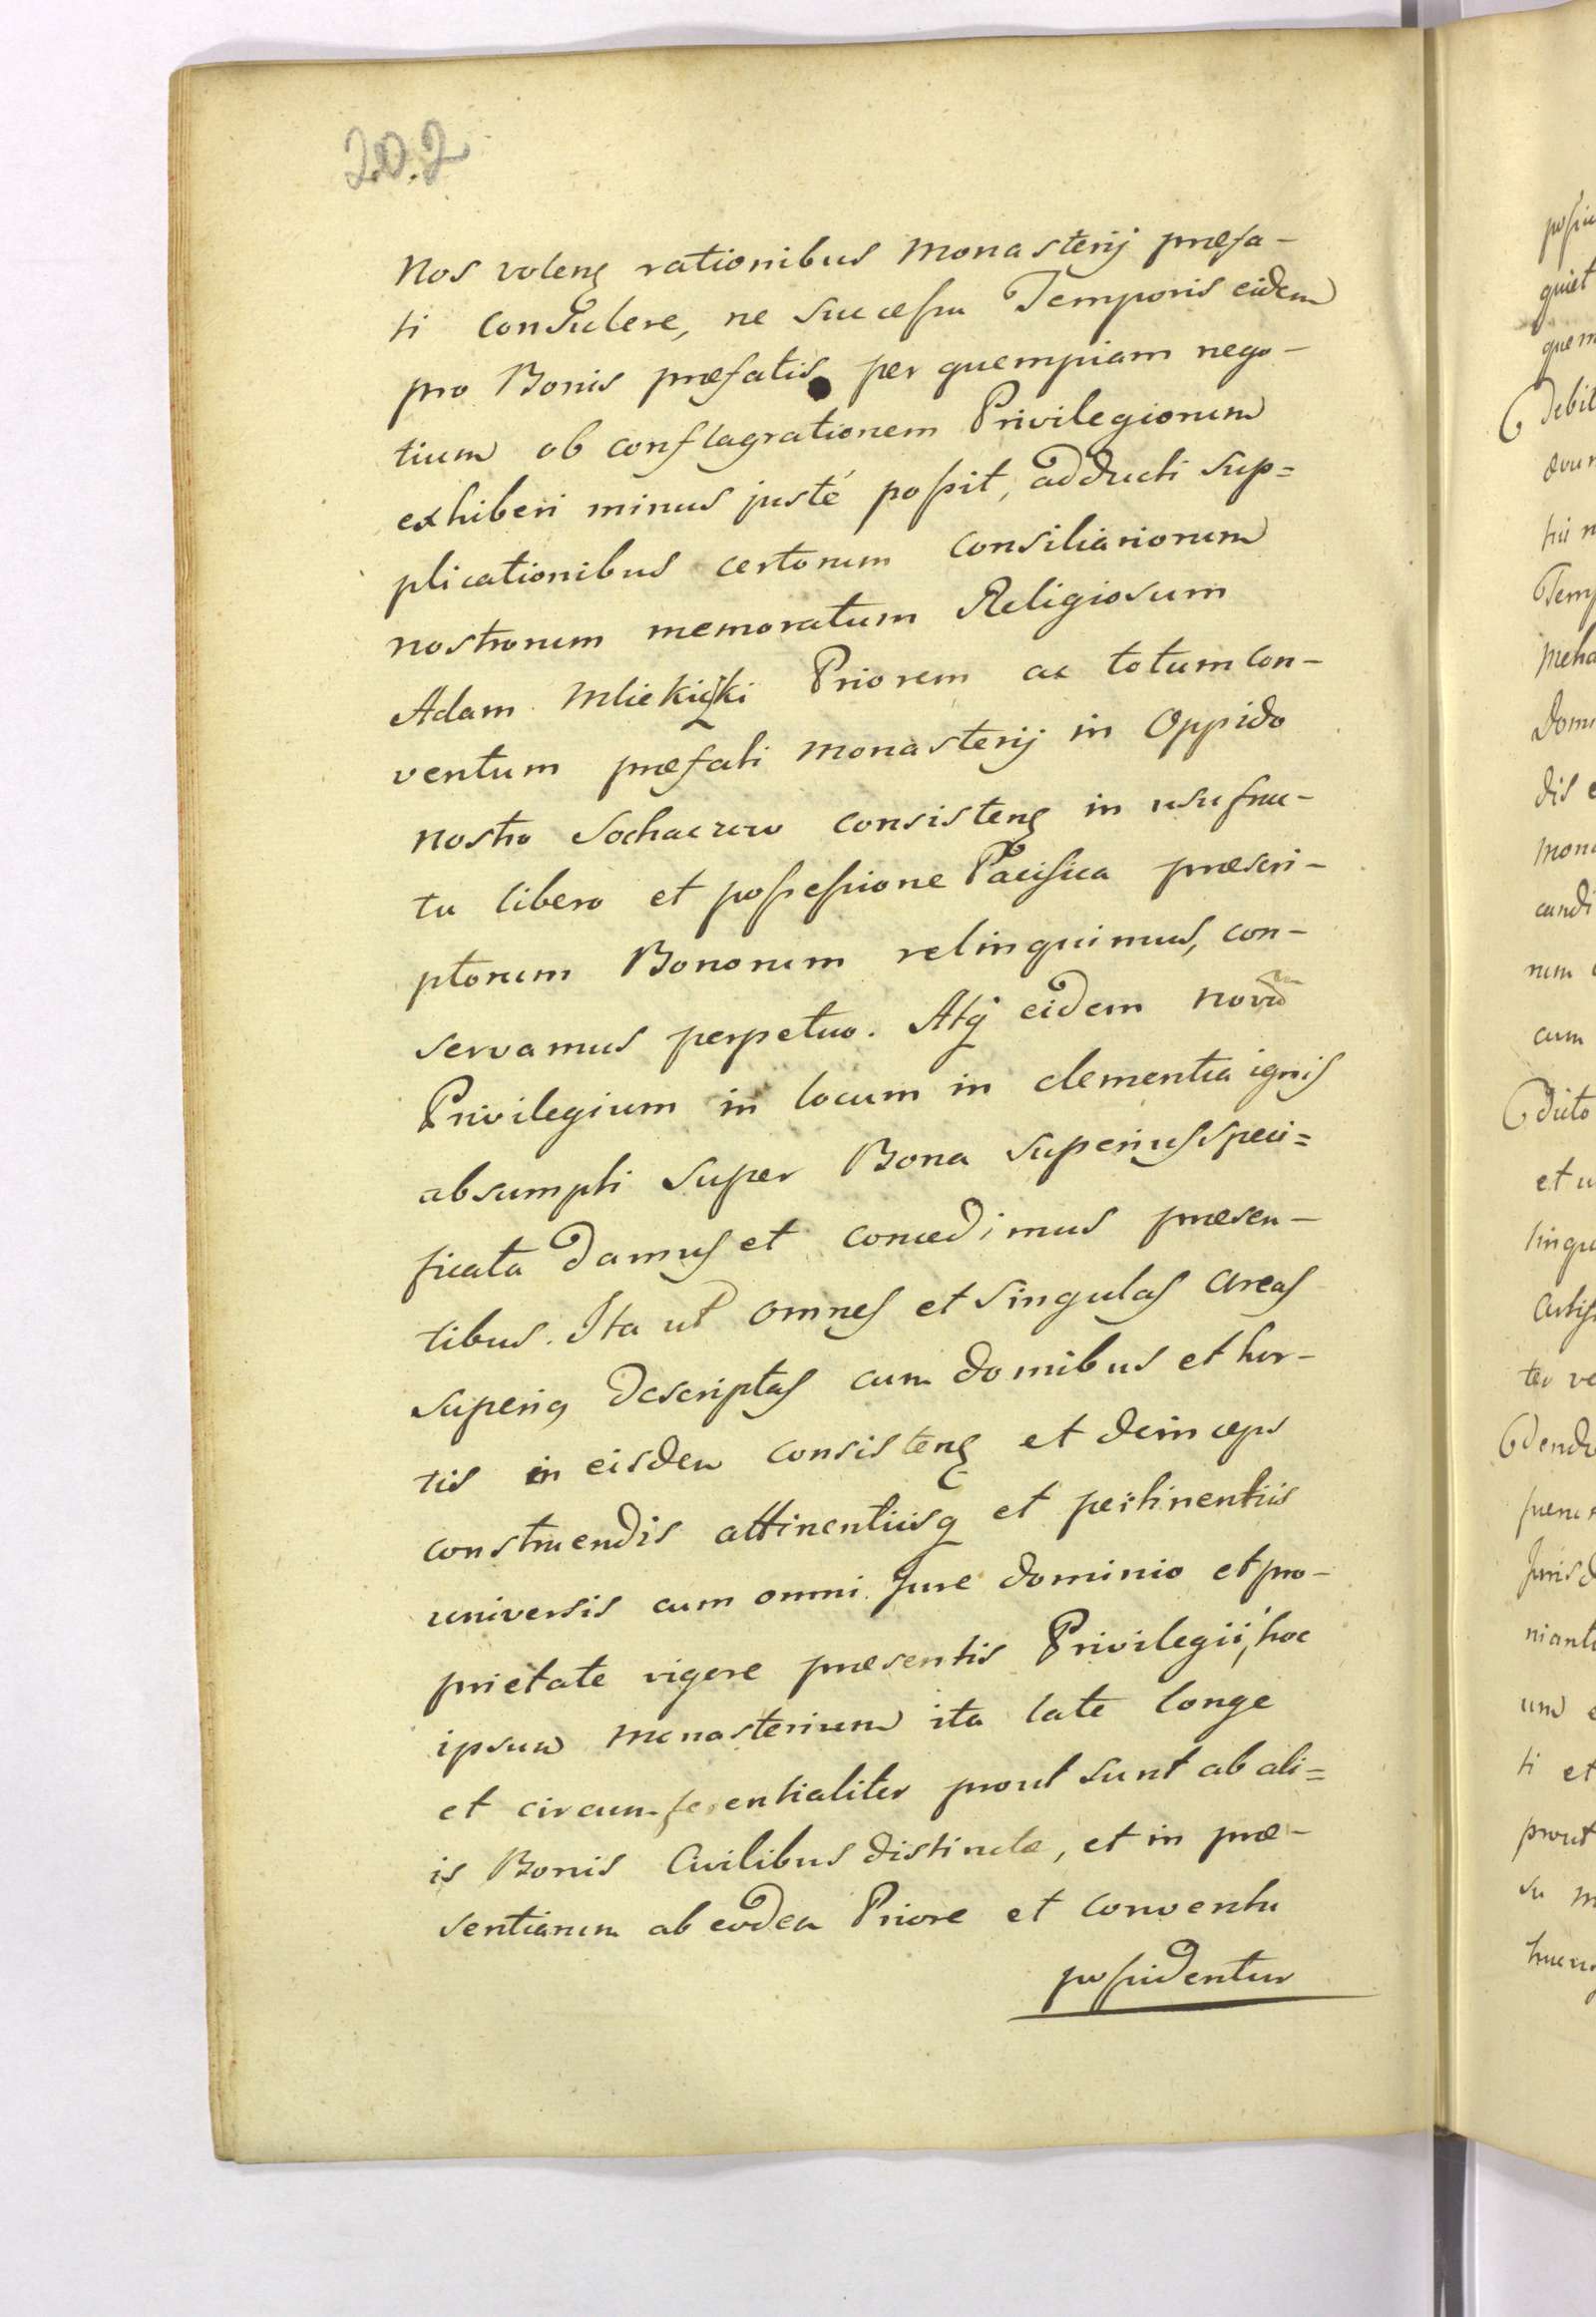 202
Nos volenς rationibus Monasterij præfa-
ti consulere, ne succeſsu Temporis eidem
pro Bonis præfatis per quempiam nego-
tium ob conflagrationem Privilegiorum
exhiberi minus justé poſsit, adducti sup=
plicationibus certorum Consiliariorum
nostrorum memoratum Religiosum
Adam Mliekiczki Priorem ac totum Con-
ventum præfati Monasterij in Oppido
nostro Sochaczew consistenς in usufruc-
tu libero et poſseſsione Pacifica præscri-
ptorum Bonorum relinquimus, con-
servamus perpetuo. Atq eidem novũ
Privilegium in locum in clementia ignis
absumpti super Bona superius speci=
ficata damus et concedimus præsen-
tibus. Ita ut omnes et singulas areas
superiꝰ descriptas cum domibus et hor-
tis in eisdem consistenς et deinceps
construendis attinentiisq et pertinentiis
universis cum omni Jure dominio et pro-
prietate vigore præsentis Privilegii, hoc
ipsum Monasterium ita late longe
et circumferentialiter prout sunt ab ali=
is Bonis Civilibus distincta, et in præ-
sentiarum ab eodem Priore et Conventu
poſsidentur
poſsi
quiet
quem
Debit
Temp
Domi
dis
candi
cum
dicto
et u
ti et
prout